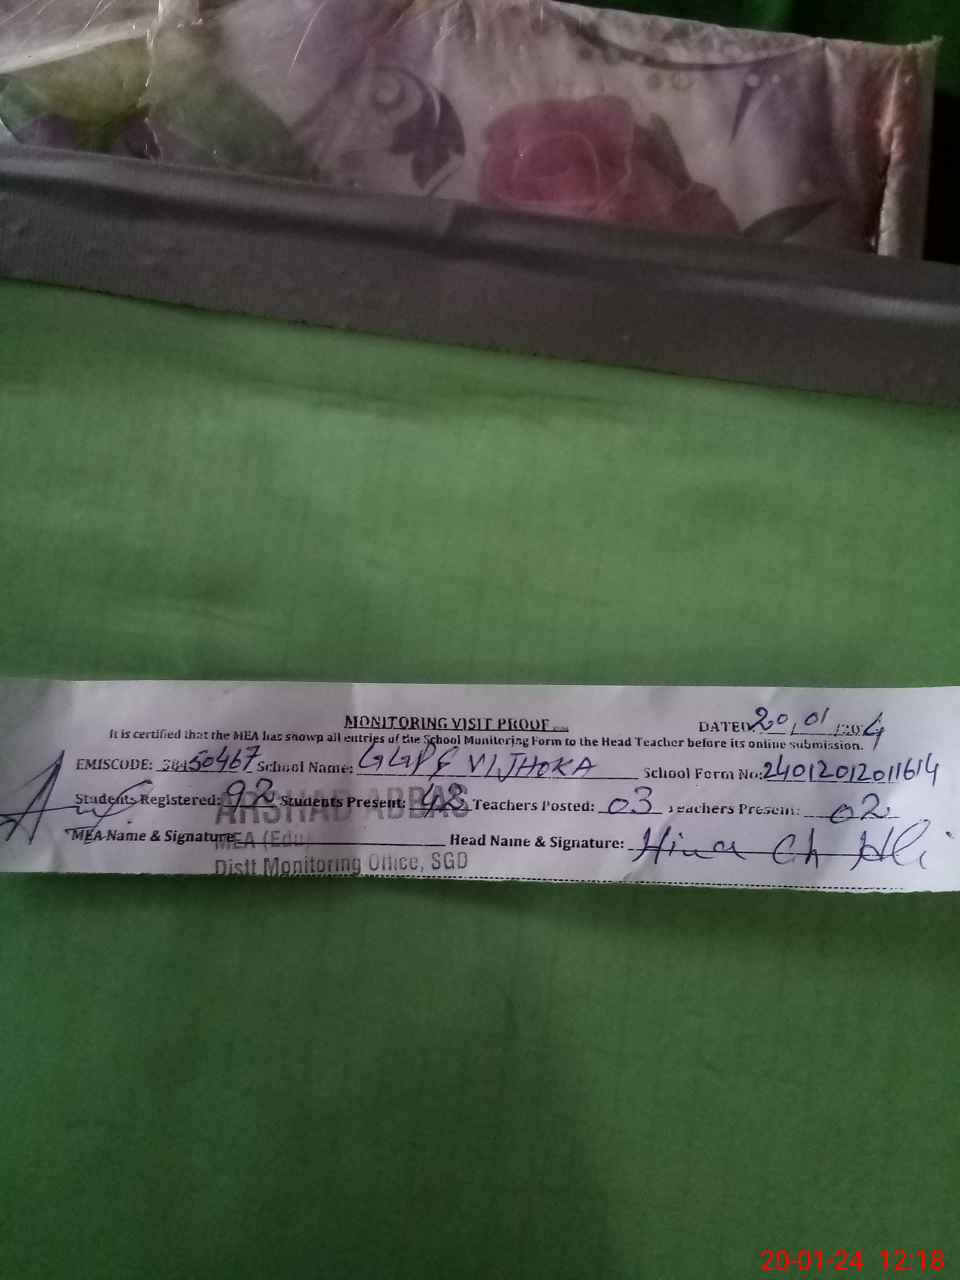 MONITORING VISIT PROOF
DATED 20,01
It is certified that the MEA has shown all entries of the School Monitoring Form to the Head Teacher before its online submission.
EMISCODE: 38450467 School Name: GGPS VIJHOKA School Form No: 24012012011614
Students Registered: 92 Students Present: 42 Teachers Posted: 03 Teachers Present: 02
ARSHAD ABBAS
MEA Name & Signature Head Name & Signature: Hina
MEA (Edu
Distt Monitoring Office, SGD
20-01-24 12:18